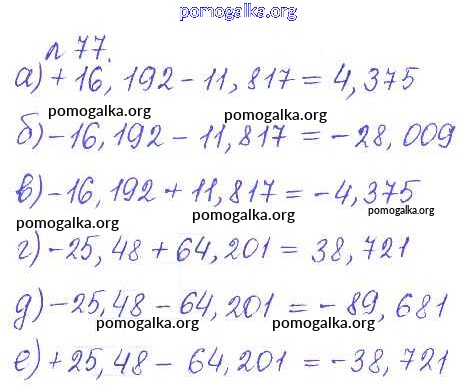 pomogalka.org
п 77.
а) + 16, 192 - 11, 817 = 4, 375
pomogalka.org pomogalka.org
б) - 16, 192 - 11, 817 = - 28, 009
в) - 16, 192 + 11, 817 = - 4, 375
pomogalka.org pomogalka.org pomogalka.org
г) - 25, 48 + 64, 201 = 38, 721
д) - 25, 48 - 64, 201 = - 89, 681
pomogalka.org pomogalka.org
е) + 25, 48 - 64, 201 = - 38, 721